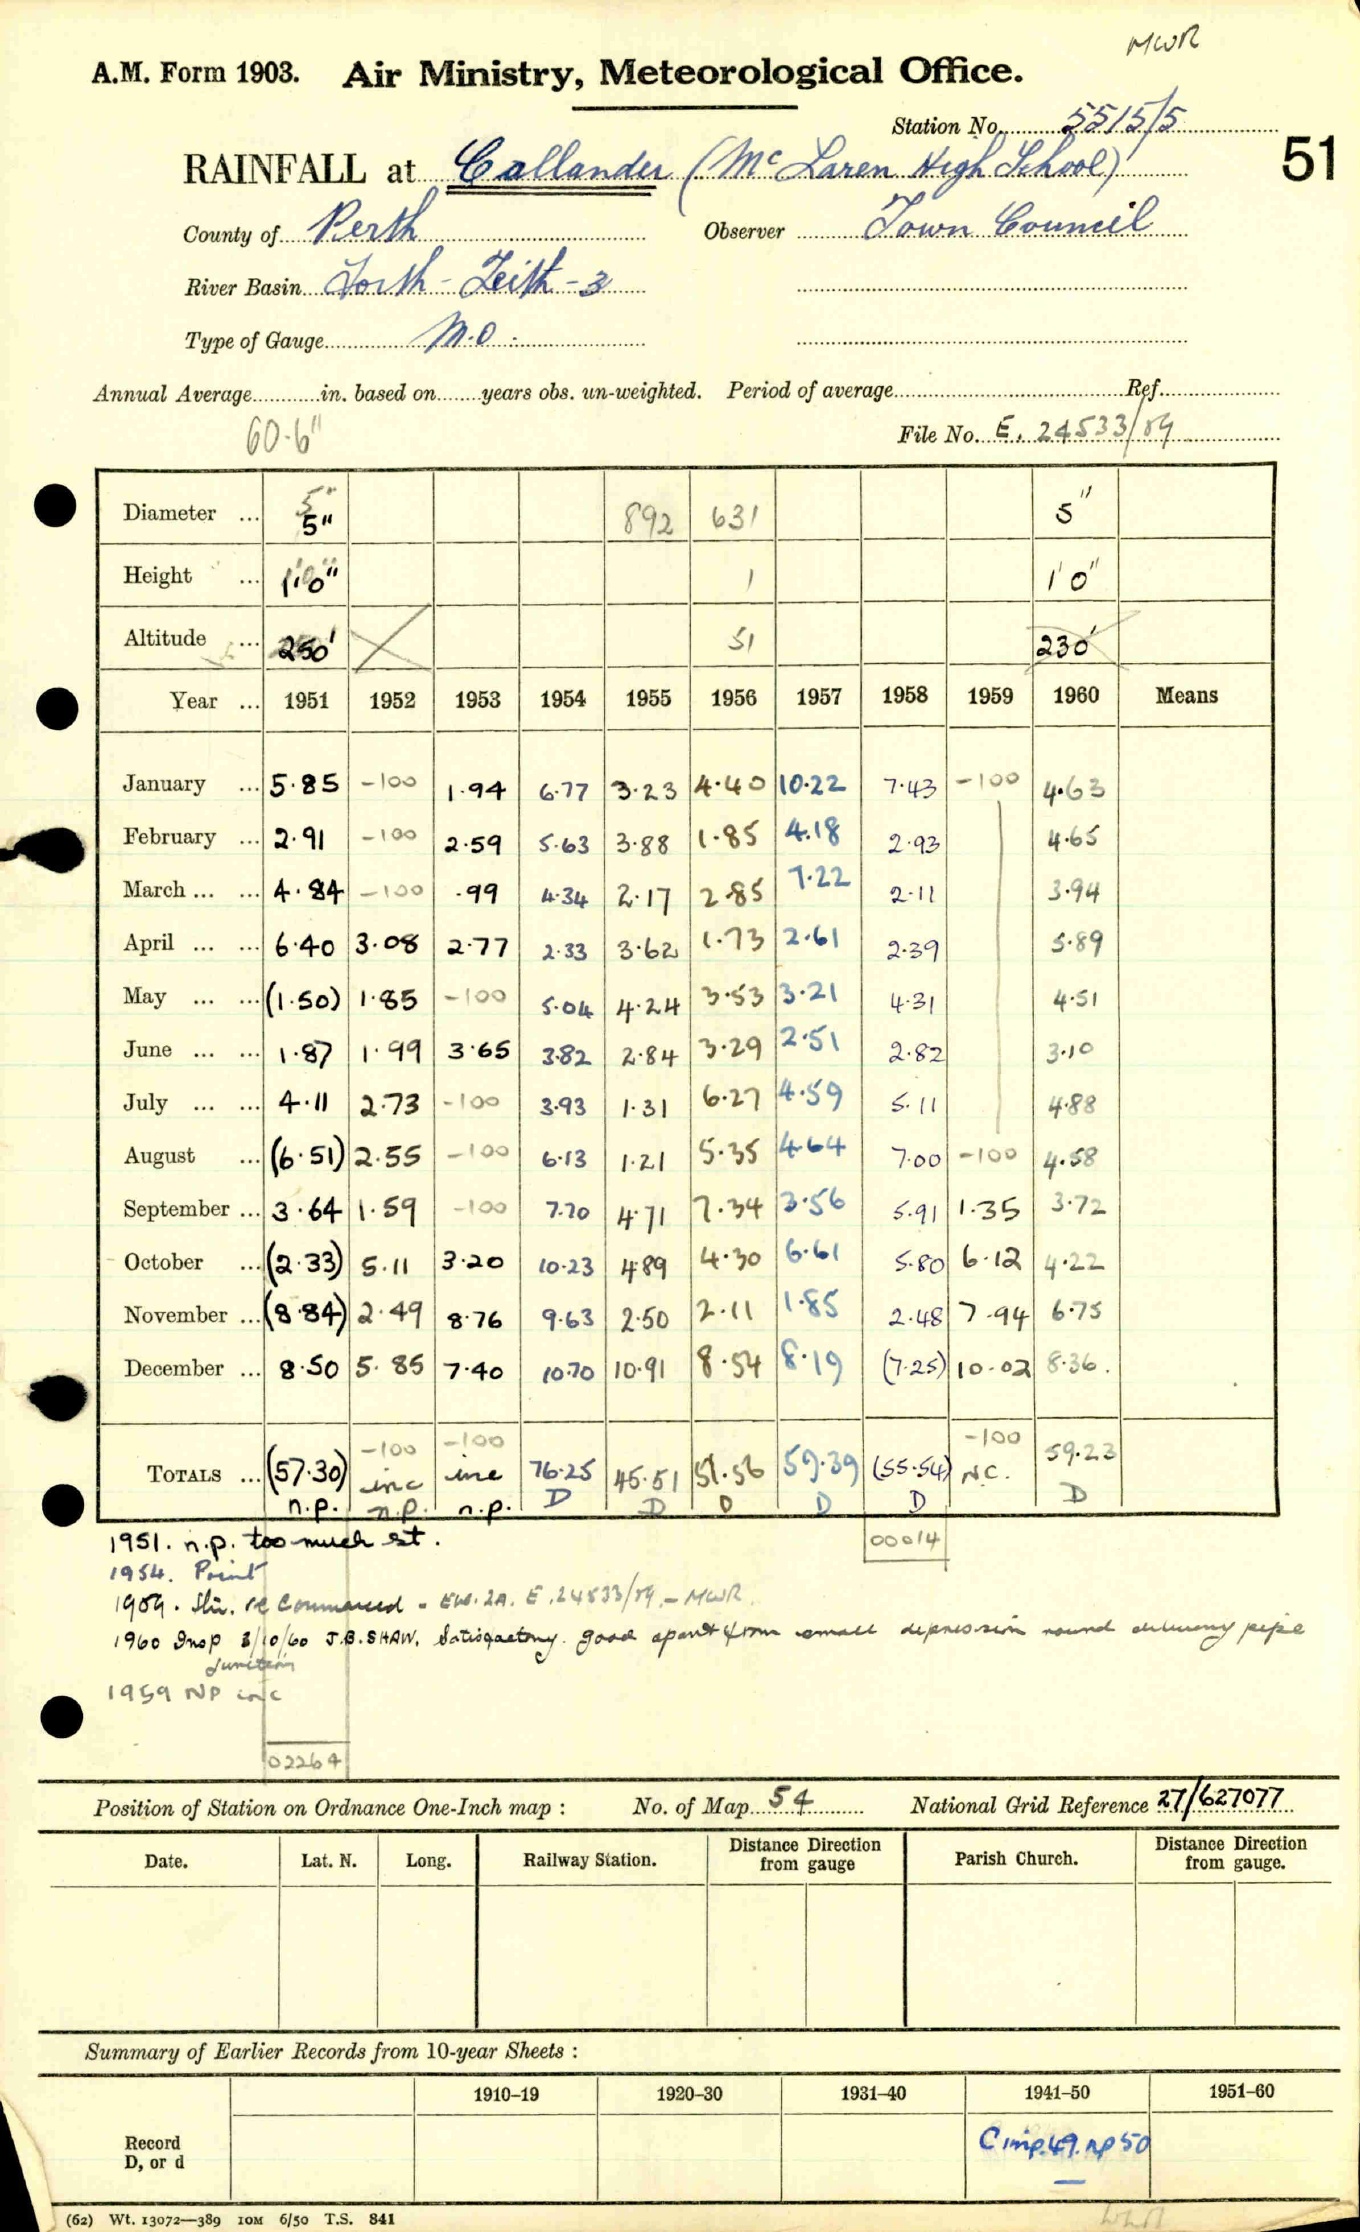 MWR
A.M. Form 1903. Air Ministry, Meteorological Office.
Station No. 5515/5
RAINFALL at Callander (McLaren High School) 51
County of Perth Observer Town Council
River Basin Forth - Teith - 3
Type of Gauge M.O.
Annual Average in. based on years obs. un-weighted. Period of average Ref.
60.6"
File No. E. 24533/59
Diameter ... 5" 5" 892 631 5"
Height ... 1'0" 1 1'0"
Altitude ... 250' 51 230'
Year ... 1951 1952 1953 1954 1955 1956 1957 1958 1959 1960 Means
January ... 5.85 -100 1.94 6.77 3.23 4.40 10.22 7.43 -100 4.63
February ... 2.91 -100 2.59 5.63 3.88 1.85 4.18 2.93 4.65
March ... ... 4.84 -100 .99 4.34 2.17 2.85 7.22 2.11 3.94
April ... ... 6.40 3.08 2.77 2.33 3.62 1.73 2.61 2.39 5.89
May ... ... (1.50) 1.85 -100 5.04 4.24 3.53 3.21 4.31 4.51
June ... ... 1.87 1.99 3.65 3.82 2.84 3.29 2.51 2.82 3.10
July ... ... 4.11 2.73 -100 3.93 1.31 6.27 4.59 5.11 4.88
August ... (6.51) 2.55 -100 6.13 1.21 5.35 4.64 7.00 -100 4.58
September ... 3.64 1.59 -100 7.70 4.71 7.34 3.56 5.91 1.35 3.72
October ... (2.33) 5.11 3.20 10.23 4.89 4.30 6.61 5.80 6.12 4.22
November ... (8.84) 2.49 8.76 9.63 2.50 2.11 1.85 2.48 7.94 6.75
December ... 8.50 5.85 7.40 10.70 10.91 8.54 8.19 (7.25) 10.02 8.36.
-100 -100 -100
TOTALS ... (57.30) inc inc 76.25 45.51 51.56 59.39 (55.54) NC. 59.23
n.p. n.p. n.p. D D D D D D
1951. n.p. too much est. 00014
1954. Point
1959. Stn. re commenced - E. 24533/59 - MWR
1960 Insp 3/10/60 J.B. SHAW. Satisfactory. Good apart from small depression round delivery pipe
junction
1959 NP inc
02264
Position of Station on Ordnance One-Inch map : No. of Map 54 National Grid Reference 27/627077
Date. Lat. N. Long. Railway Station. Distance from gauge Direction Parish Church. Distance from gauge. Direction
Summary of Earlier Records from 10-year Sheets :
1910–19 1920–30 1931–40 1941–50 1951–60
Record
D, or d
C inp.49. np 50
(62) Wt. 13072—389 10M 6/50 T.S. 841